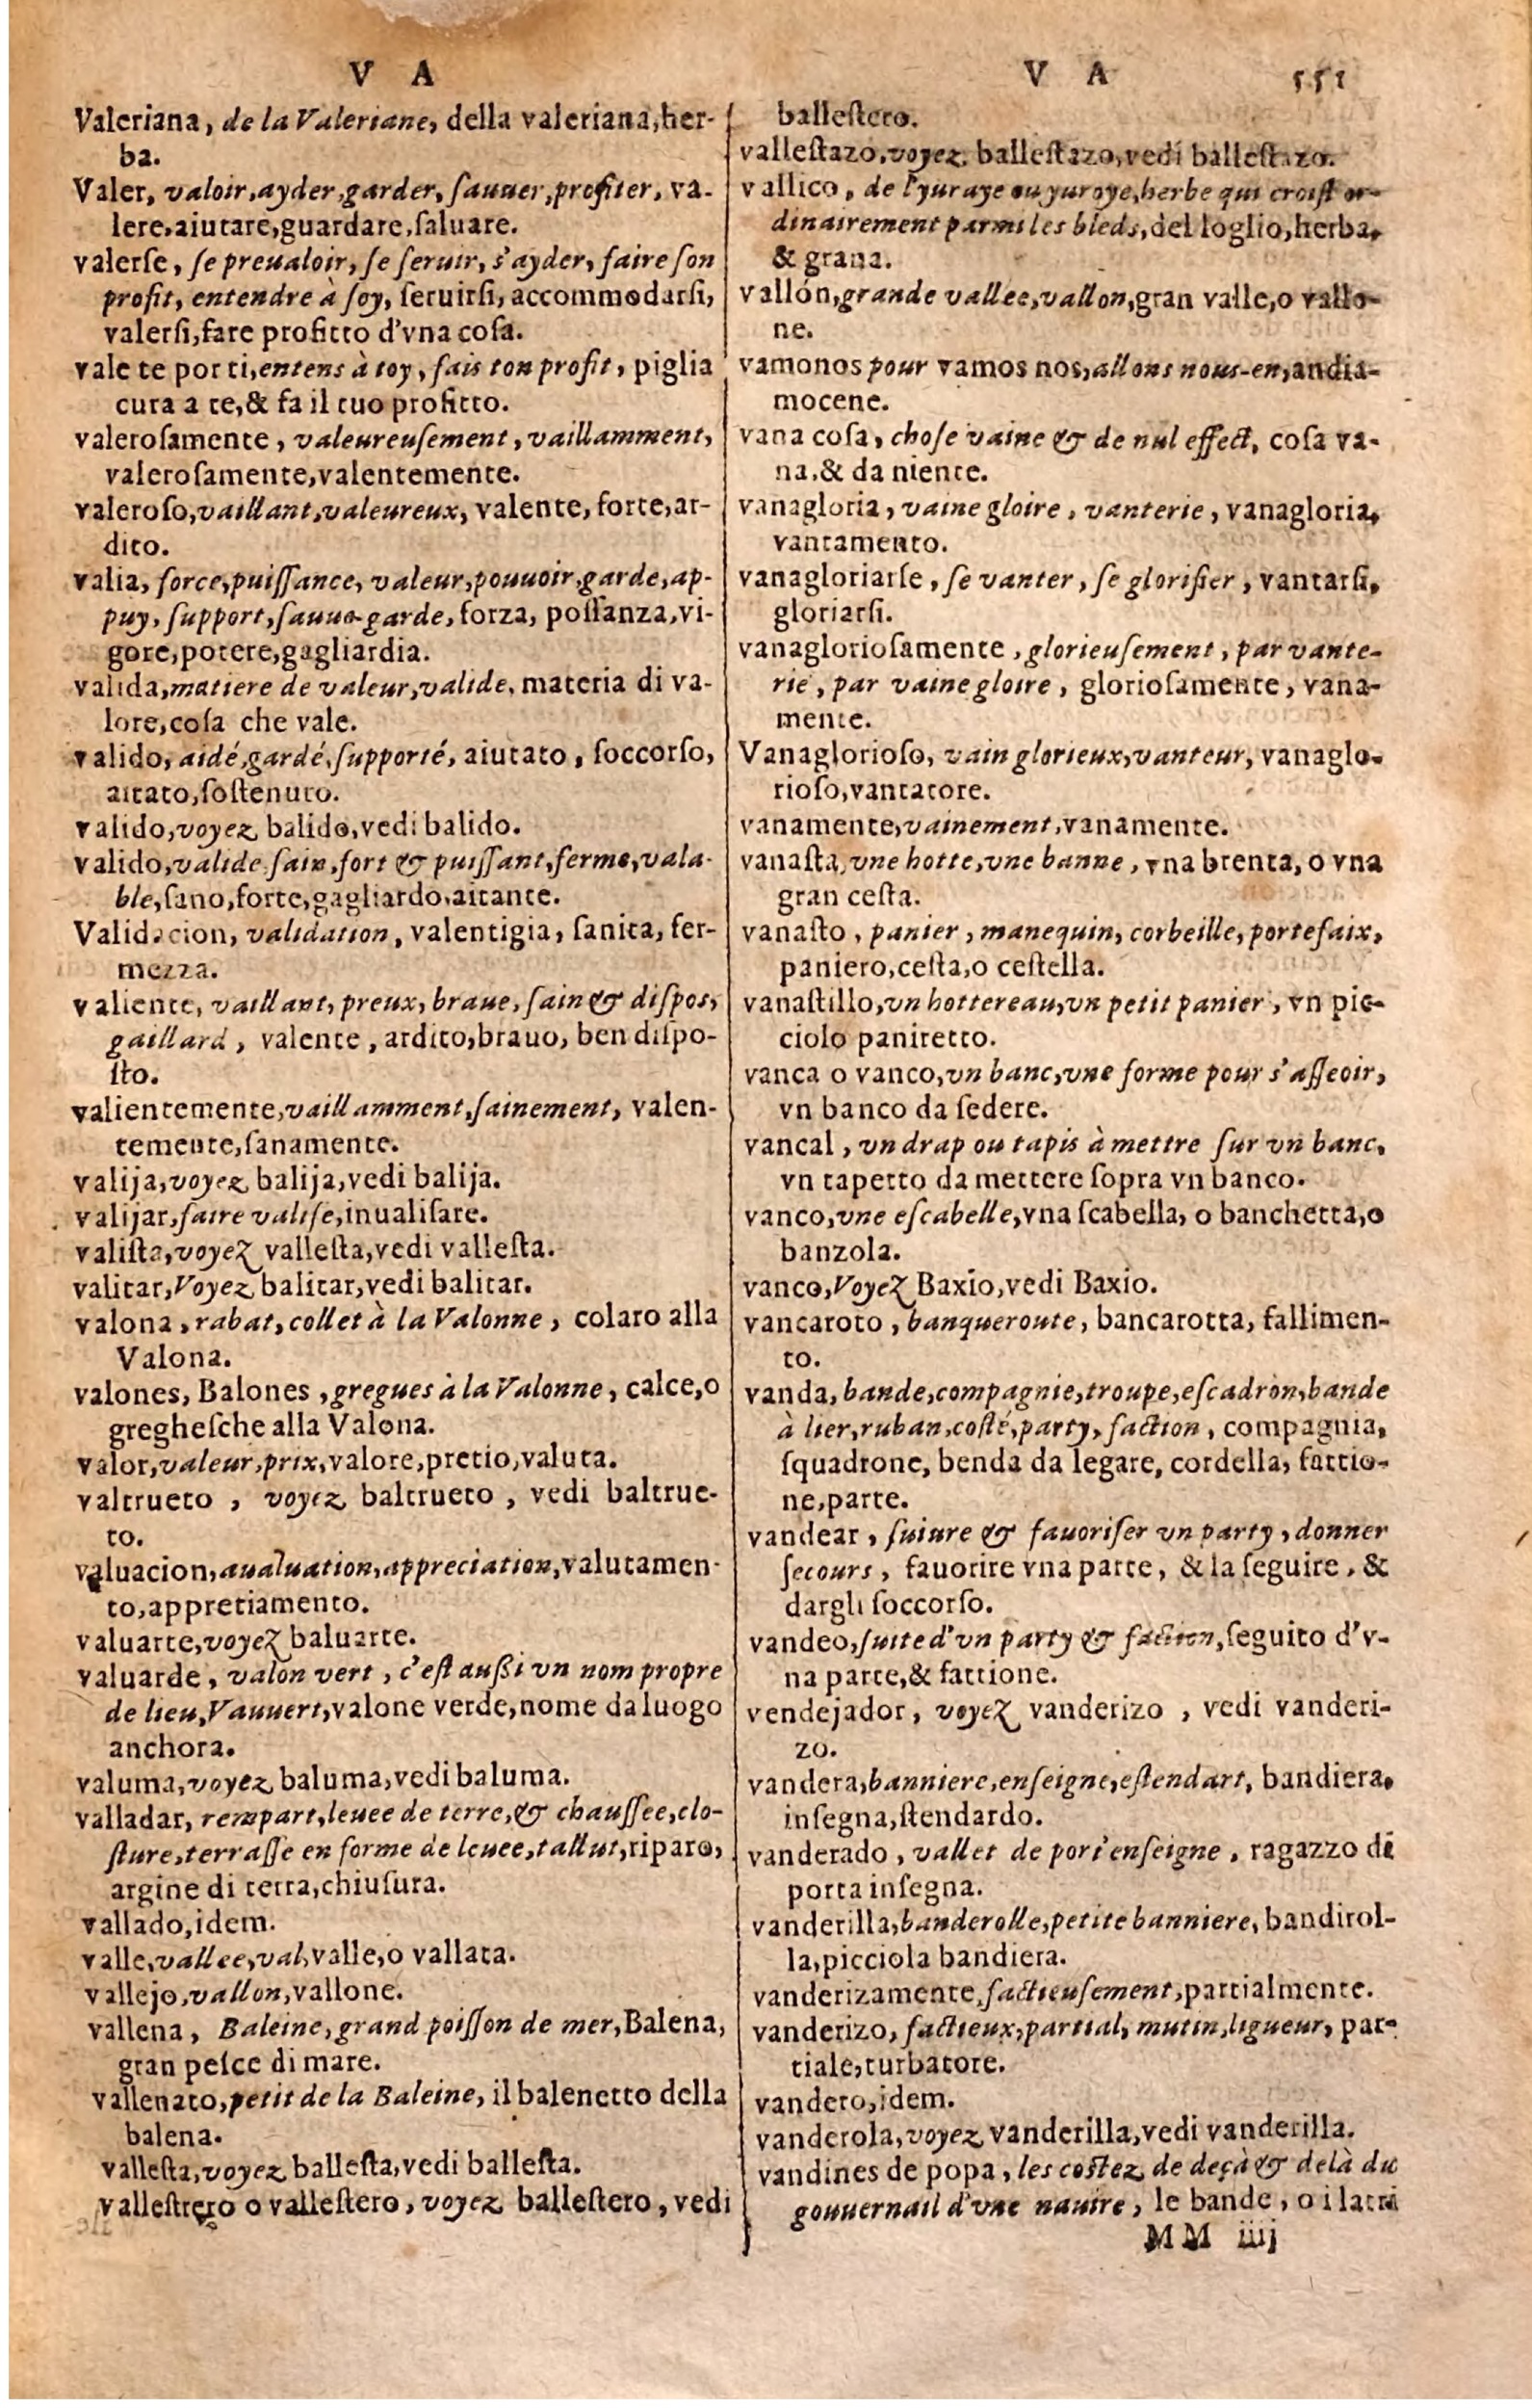 V A
Valeriana, de la Valeriane, della valeriana, her-
ba.
Valer, valoir, ayder, garder, sauuer, profiter, va-
lere, aiutare, guardare, saluare.
valerse, se preualoir, se seruir, s'ayder, faire son
profit, entendre à soy, seruirsi, accommodarsi,
valersi, fare profitto d'vna cosa.
vale te por ti, entens à toy, fais ton profit, piglia
cura a te, & fa il tuo profitto.
valerosamente, valeureusement, vaillamment,
valerosamente, valentemente.
valeroso, vaillant, valeureux, valente, forte, ar-
dito.
valia, force, puissance, valeur, pouuoir, garde, ap-
puy, support, sauue-garde, forza, possanza, vi-
gore, potere, gagliardia.
valida, matiere de valeur, valide, materia di va-
lore, cosa che vale.
valido, aidé, gardé, supporté, aiutato, soccorso,
aitato, sostenuto.
valido, voyez balido, vedi balido.
valido, valide sain, fort & puissant, ferme, vala-
ble, sano, forte, gagliardo, aitante.
Validacion, validation, valentigia, sanita, fer-
mezza.
valiente, vaillant, preux, braue, sain & dispos,
gaillard, valente, ardito, brauo, ben dispo-
sto.
valientemente, vaillamment, sainement, valen-
temente, sanamente.
valija, voyez balija, vedi balija.
valijar, faire valise, inualisare.
valista, voyez vallesta, vedi vallesta.
valitar, Voyez balitar, vedi balitar.
valona, rabat, collet à la Valonne, colaro alla
Valona.
valones, Balones, gregues à la Valonne, calce, o
greghesche alla Valona.
valor, valeur, prix, valore, pretio, valuta.
valtrueto, voyez baltrueto, vedi baltrue-
to.
valuacion, aualuation, appreciation, valutamen-
to, appretiamento.
valuarte, voyez baluarte.
valuarde, valon vert, c'est aussi vn nom propre
de lieu, Vauuert, valone verde, nome da luogo
anchora.
valuma, voyez baluma, vedi baluma.
valladar, rempart, leuee de terre, & chaussee, clo-
sture, terrasse en forme de leuee, tallut, riparo,
argine di terra, chiusura.
vallado, idem.
valle, vallee, val, valle, o vallata.
vallejo, vallon, vallone.
vallena, Baleine, grand poisson de mer, Balena,
gran pesce di mare.
vallenato, petit de la Baleine, il balenetto della
balena.
vallesta, voyez ballesta, vedi ballesta.
vallestrero o vallestero, voyez ballestero, vedi
V A 551
ballestero.
vallestazo, voyez ballestazo, vedi ballestazo.
vallico, de l'yuraye ou yuroye, herbe qui croist or-
dinairement parmi les bleds, del loglio, herba,
& grana.
vallón, grande vallee, vallon, gran valle, o vallo-
ne.
vamonos pour vamos nos, allons nous-en, andia-
mocene.
vana cosa, chose vaine & de nul effect, cosa va-
na, & da niente.
vanagloria, vaine gloire, vanterie, vanagloria,
vantamento.
vanagloriarse, se vanter, se glorifier, vantarsi,
gloriarsi.
vanagloriosamente, glorieusement, par vante-
rie, par vaine gloire, gloriosamente, vana-
mente.
Vanaglorioso, vain glorieux, vanteur, vanaglo-
rioso, vantatore.
vanamente, vainement, vanamente.
vanasta, vne hotte, vne banne, vna brenta, o vna
gran cesta.
vanasto, panier, manequin, corbeille, portefaix,
paniero, cesta, o cestella.
vanastillo, vn hottereau, vn petit panier, vn pic-
ciolo paniretto.
vanca o vanco, vn banc, vne forme pour s'asseoir,
vn banco da sedere.
vancal, vn drap ou tapis à mettre sur vn banc,
vn tapetto da mettere sopra vn banco.
vanco, vne escabelle, vna scabella, o banchetta, o
banzola.
vanco, Voyez Baxio, vedi Baxio.
vancaroto, banqueroute, bancarotta, fallimen-
to.
vanda, bande, compagnie, troupe, escadron, bande
à lier, ruban, costé, party, faction, compagnia,
squadrone, benda da legare, cordella, fattio-
ne, parte.
vandear, suiure & fauoriser vn party, donner
secours, fauorire vna parte, & la seguire, &
dargli soccorso.
vandeo, suite d'vn party & faction, seguito d'v-
na parte, & fattione.
vendejador, voyez vanderizo, vedi vanderi-
zo.
vandera, banniere, enseigne, estendart, bandiera,
insegna, stendardo.
vanderado, vallet de port'enseigne, ragazzo di
porta insegna.
vanderilla, banderolle, petite banniere, bandirol-
la, picciola bandiera.
vanderizamente, factieusement, partialmente.
vanderizo, factieux, partial, mutin, ligueur, par-
tiale, turbatore.
vandero, idem.
vanderola, voyez vanderilla, vedi vanderilla.
vandines de popa, les costez de deçà & delà du
gouuernail d'vne nauire, le bande, o i latri
MM iiij